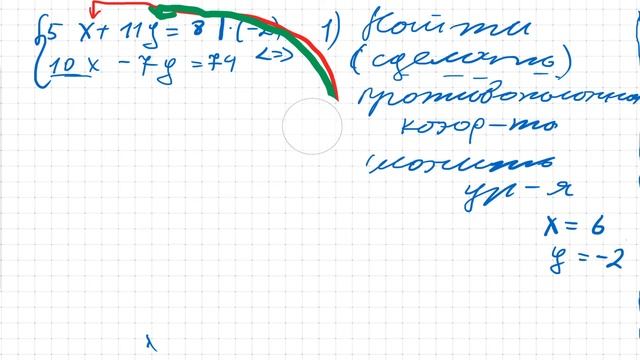 5 x + 11y = 8 | · (-2)
10 x - 7y = 74
<=>
1) Найти
(сделать)
противоположн
коэф-ты
сложить
ур-я
x = 6
y = -2
λ